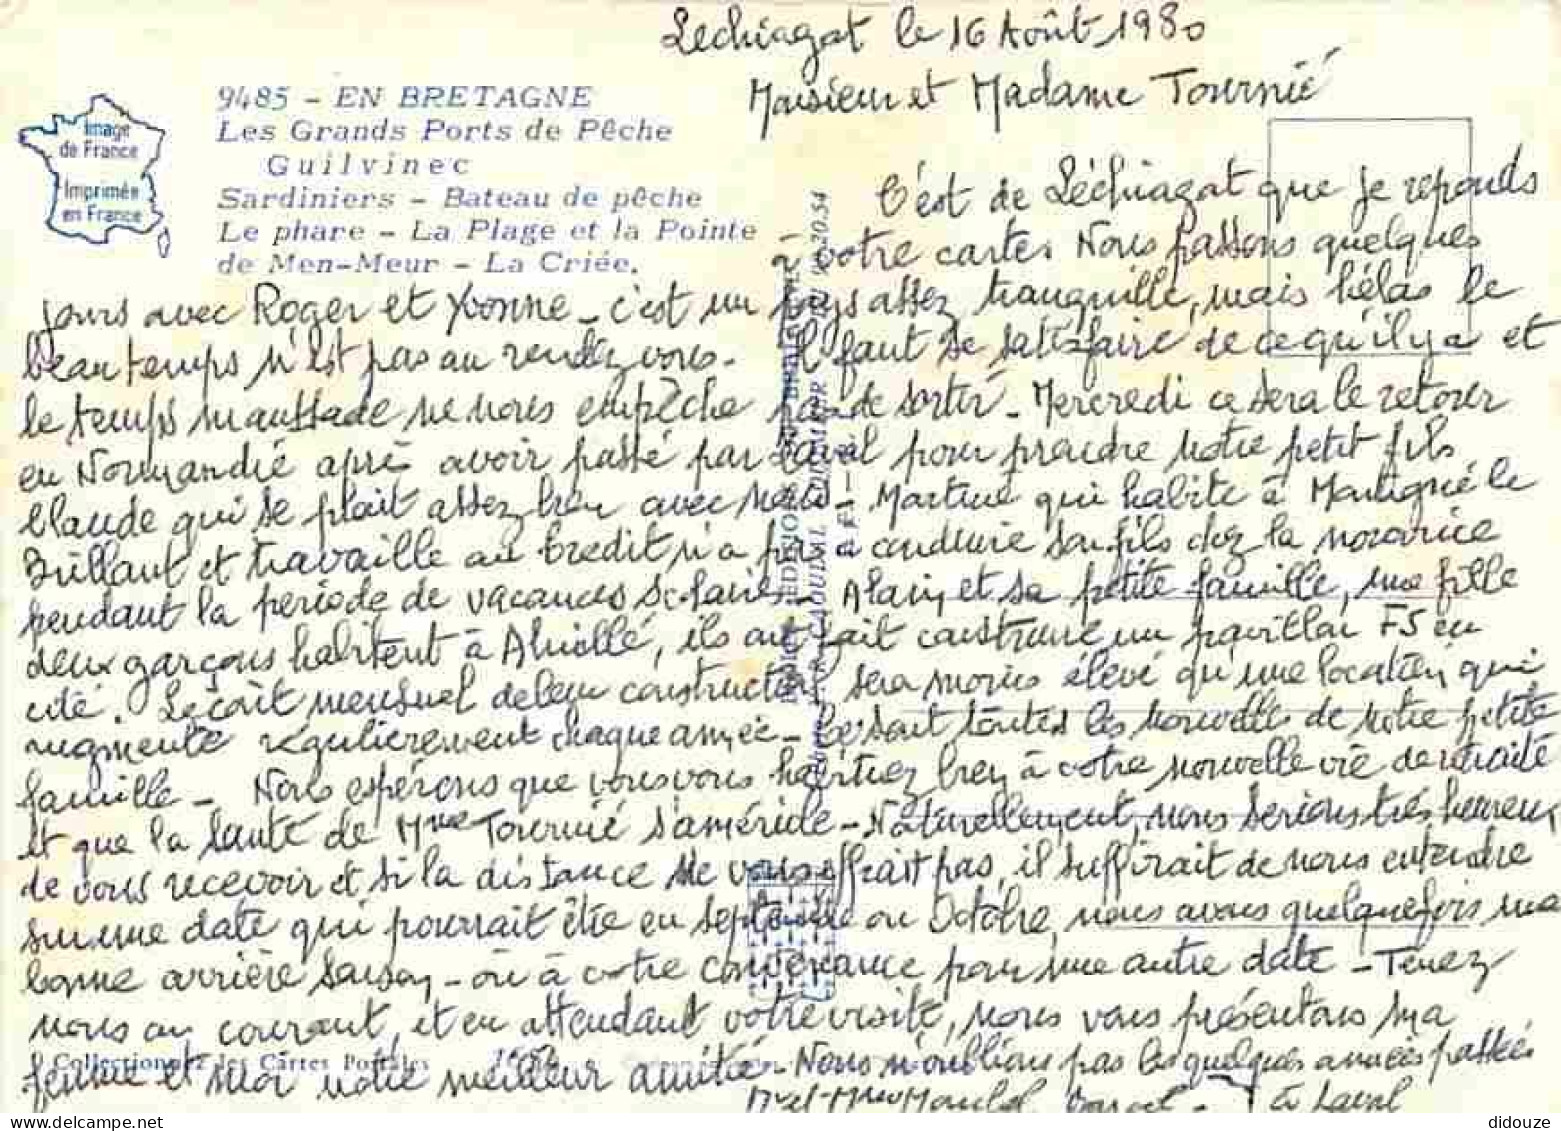 Léchiagat le 16 Août 1980
Monsieur et Madame Tournié
9485 - EN BRETAGNE
Les Grands Ports de Pêche
Guilvinec
Sardiniers - Bateau de pêche
Le phare - La Plage et la Pointe
de Men-Meur - La Criée.
Image
de France
Imprimée
en France
C'est de Léchiagat que je reponds
à votre carte. Nous passons quelques
jours avec Roger et Yvonne - c'est un pays assez tranquille, mais hélas le
beau temps n'est pas au rendez vous. Il faut se satisfaire de ce qu'il y a et
le temps maussade ne nous empêche pas de sortir - Mercredi ce sera le retour
en Normandie après avoir passé par Laval pour prendre notre petit fils
Claude qui se plait assez bien avec nous - Martine qui habite à Martigné le
Brillant et travaille au Credit n'a pas à conduire son fils chez la nourrice
pendant la période de vacances scolaires - Alain et sa petite famille, une fille
deux garçons habitent à Ahuillé, ils ont fait construire un pavillon F5 en
cité. Le coût mensuel de leur construction sera moins élevé qu'une location qui
augmente régulièrement chaque année - ce sont toutes les nouvelles de notre petite
famille - Nous espérons que vous vous habituez bien à votre nouvelle vie de retraité
et que la santé de Mme Tournié s'améliore - Naturellement, nous serions très heureux
de vous recevoir et si la distance ne vous effrait pas, il suffirait de nous entendre
sur une date qui pourrait être en septembre ou Octobre, nous avons quelquefois une
bonne arrière saison - ou à votre convenance pour une autre date - Tenez
nous au courant, et en attendant votre visite, nous vous présentons ma
femme et moi notre meilleur amitié - Nous n'oublions pas les quelques années passées
à Laval
Mr et Mme
Collectionnez les Cartes Postales
didouze